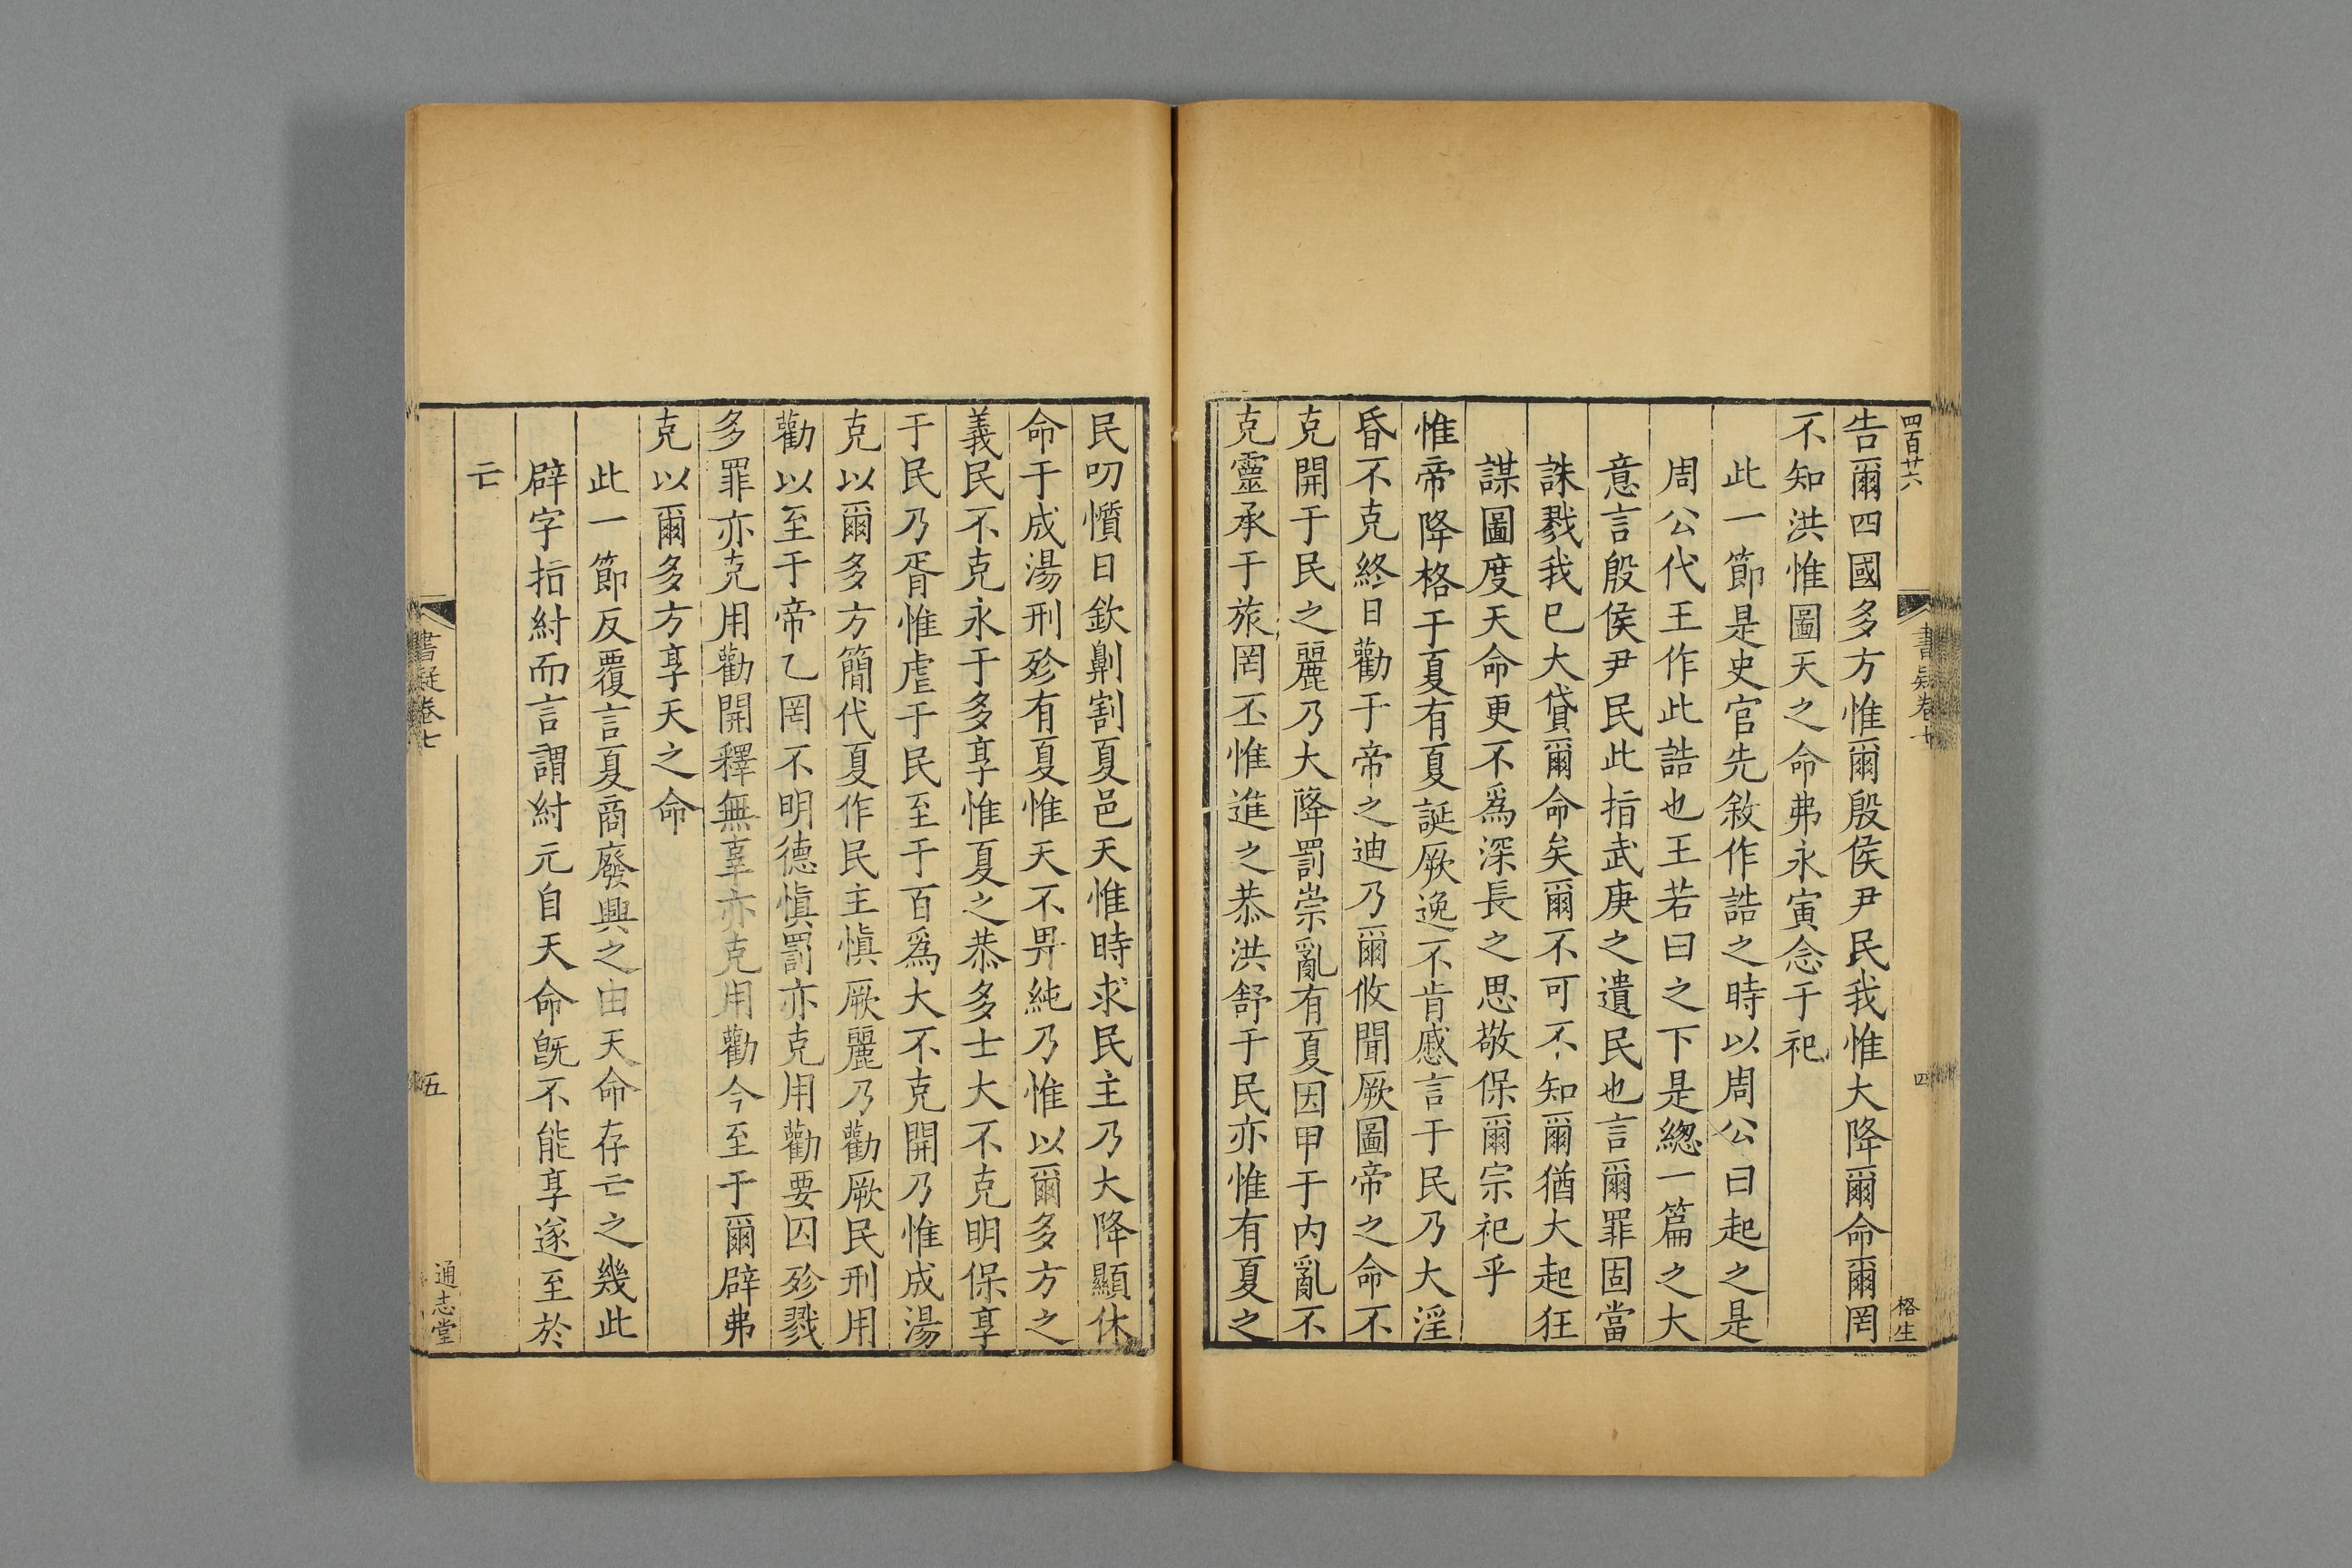 四百廿六
書疑卷七
四
格生
告爾四國多方惟爾殷侯尹民我惟大降爾命爾罔
不知洪惟圖天之命弗永寅念于祀
此一節是史官先敘作誥之時以周公曰起之是
周公代王作此誥也王若曰之下是緫一篇之大
意言殷侯尹民此指武庚之遺民也言爾罪固當
誅戮我巳大貸爾命矣爾不可不知爾猶大起狂
謀圖度天命更不爲深長之思敬保爾宗祀乎
惟帝降格于夏有夏誕厥逸不肯慼言于民乃大淫
昏不克終日勸于帝之迪乃爾攸聞厥圖帝之命不
克開于民之麗乃大降罰崇亂有夏因甲于内亂不
克靈承于旅罔丕惟進之恭洪舒于民亦惟有夏之
民叨懫日欽劓割夏邑天惟時求民主乃大降顯休
命于成湯刑殄有夏惟天不畀純乃惟以爾多方之
義民不克永于多享惟夏之恭多士大不克明保享
于民乃胥惟虐于民至于百爲大不克開乃惟成湯
克以爾多方簡代夏作民主慎厥麗乃勸厥民刑用
勸以至于帝乙罔不明德慎罰亦克用勸要囚殄戮
多罪亦克用勸開釋無辜亦克用勸今至于爾辟弗
克以爾多方享天之命
此一節反覆言夏商廢興之由天命存亡之幾此
辟字指紂而言謂紂元自天命旣不能享遂至於
亡
書疑卷七
五
通志堂